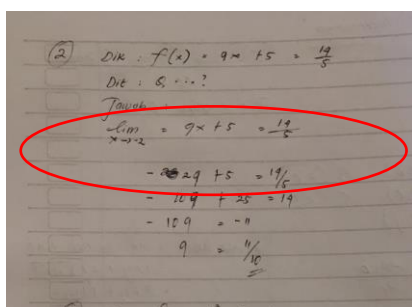 (2) Dik : f(x) = qx + 5 = 14/5
Dit : Q ...?
Jawab :
lim x→-2 = qx + 5 = 14/5
- 2q + 5 = 14/5
- 10q + 25 = 14
- 10q = -11
q = 11/10